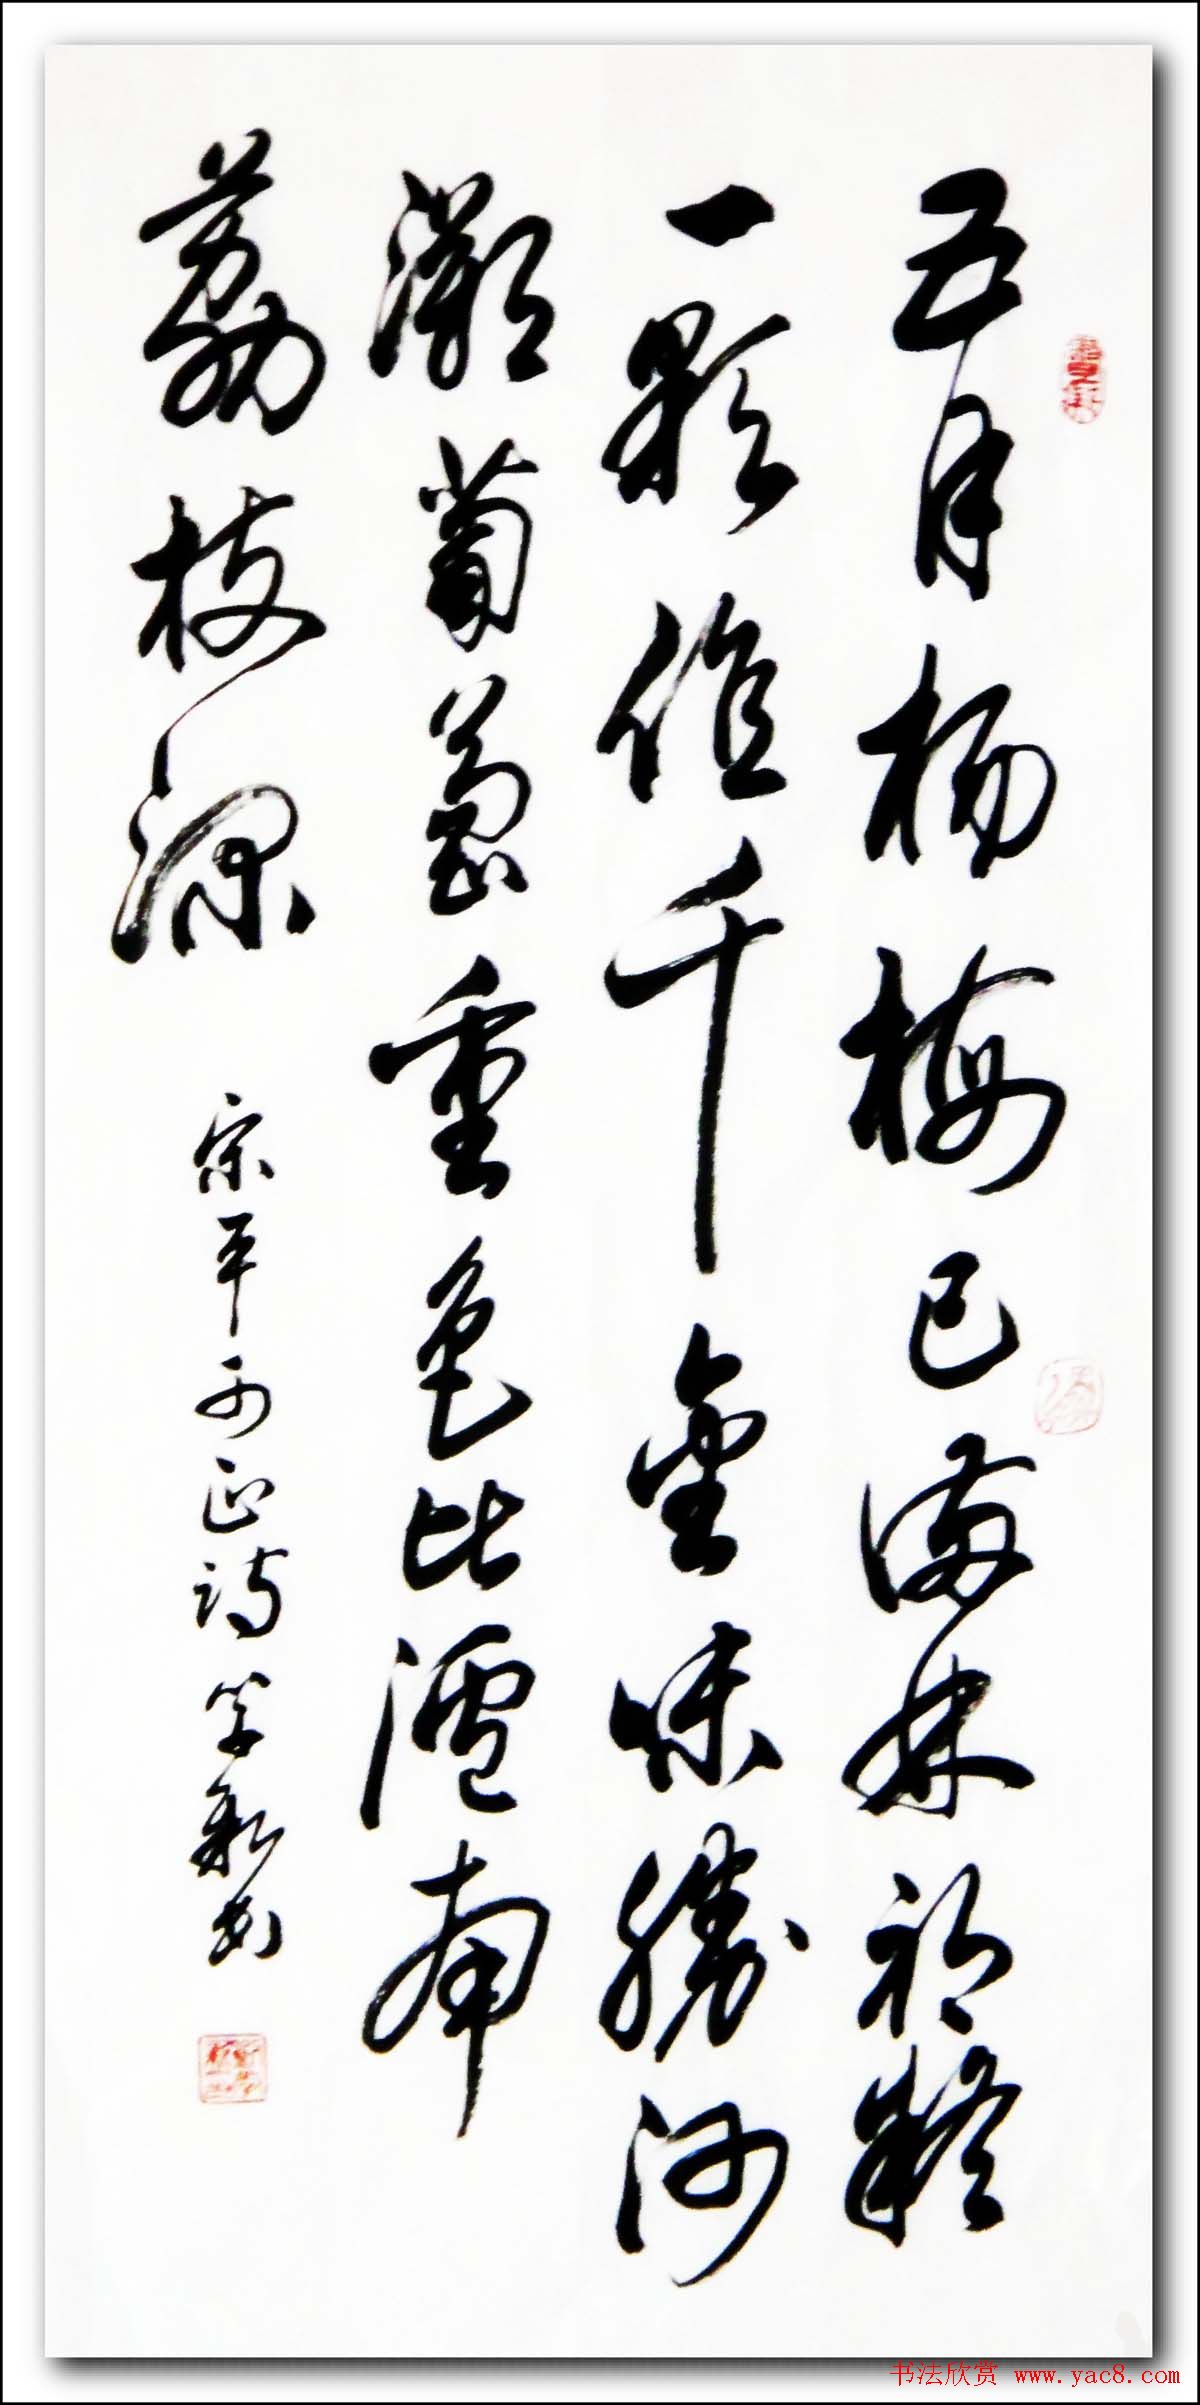 五月杨梅已满林初疑
一颗值千金味勝河
葡萄重色比瀘南
荔枝深
宋平可正诗学新书
书法欣赏 www.yac8.com